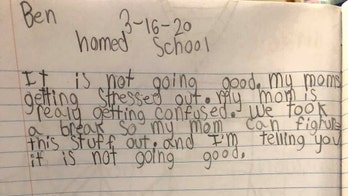 Ben
3-16-20
homed School
It is not going good. my moms
getting stressed out. my mom is
realy getting confused. we took
a break so my mom can fighure
this stuff out. and I'm telling you
it is not going good.